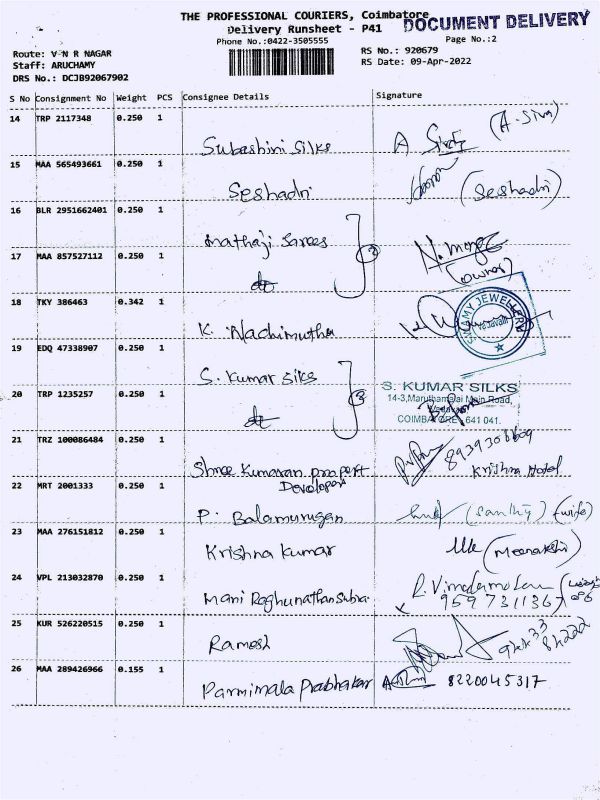 THE PROFESSIONAL COURIERS, Coimbatore
DOCUMENT DELIVERY
Delivery Runsheet - P41
Phone No.:0422-3505555
Page No.:2
Route: V N R NAGAR
RS No.: 920679
Staff: ARUCHAMY
RS Date: 09-Apr-2022
DRS No.: DCJB92067902
S No Consignment No Weight PCS Consignee Details Signature
14 TRP 2117348 0.250 1
Subashini Silks A Siva (A-Siva)
15 MAA 565493661 0.250 1
Seshadri (Seshadri)
16 BLR 2951662401 0.250 1
Mathaji Sarees 2
17 MAA 857527112 0.250 1
do (owner)
18 TKY 386463 0.342 1
K. Nachimuthu SWAMY JEWELLERY
19 EDQ 47338907 0.250 1
S. Kumar Silks 2
20 TRP 1235257 0.250 1
do
S. KUMAR SILKS
14-3,Maruthamalai Main Road,
Vadavalli
COIMBATORE - 641 041.
21 TRZ 100086484 0.250 1
Shree Kumaran Propert
Developers
8939306609
Krishna Hotel
22 MRT 2001333 0.250 1
P. Balamurugan (Santhy) (wife)
23 MAA 276151812 0.250 1
Krishna Kumar (Meenakshi)
24 VPL 213032870 0.250 1
Mani Raghunathan Subra.
9597311367
25 KUR 526220515 0.250 1
Ramesh
26 MAA 289426966 0.155 1
Parimimala Prabhakar 8220045317